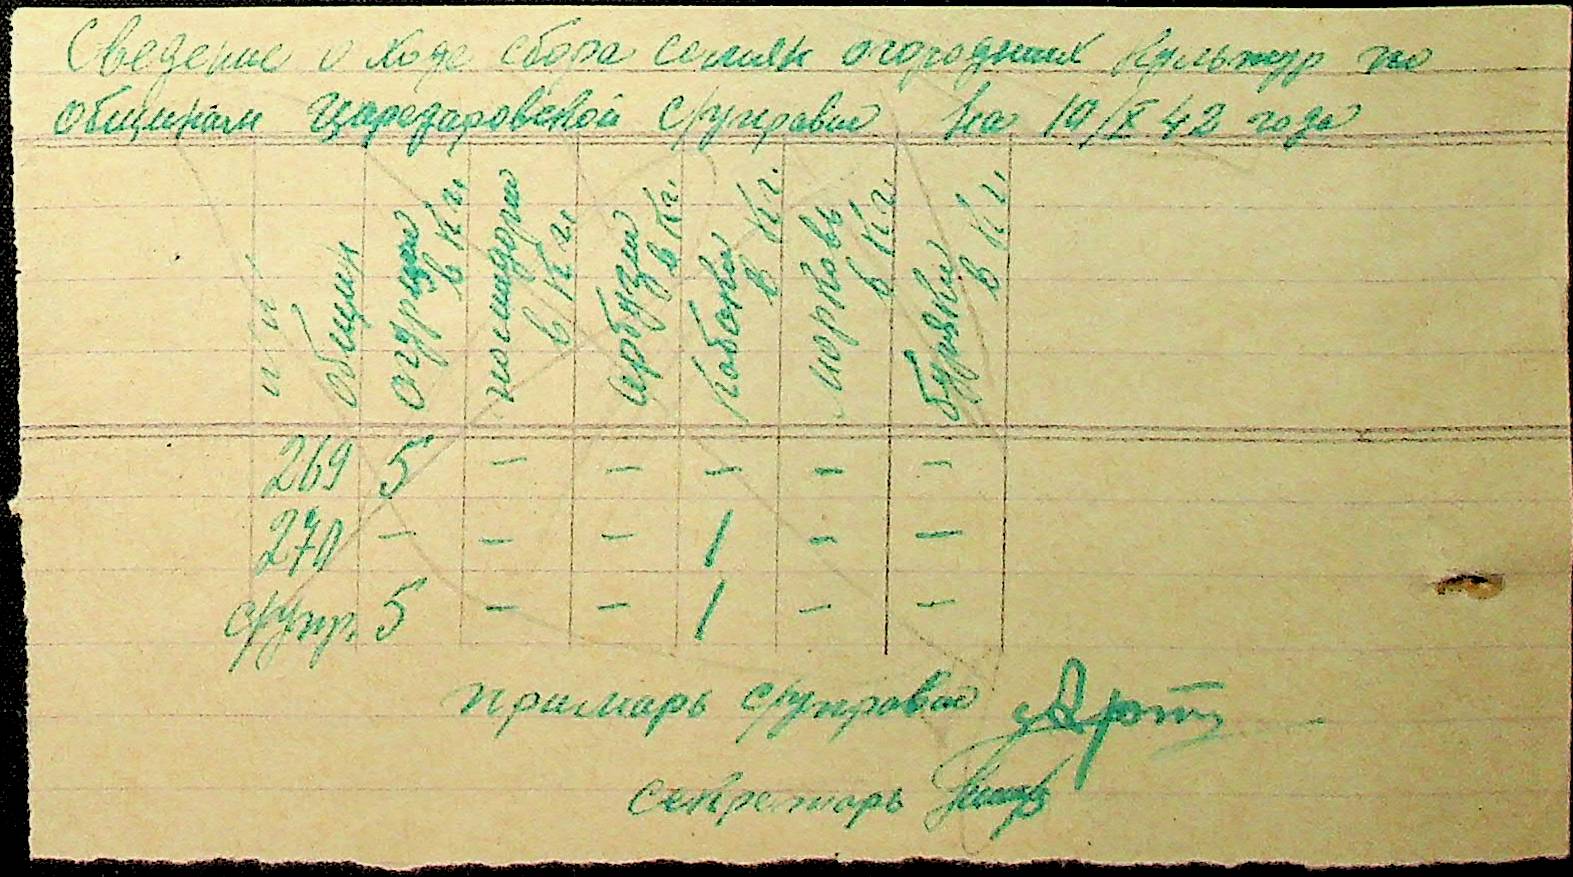 Сведение о ходе сбора семян огородних культур по
общинам Царедаровской с/управи на 19/X 42 года
№ общин
огурци в кг.
помидори в кг.
арбузи в кг.
кабаки в кг.
морковь в кг.
буряки в кг.
269 5 – – – – –
270 – – – 1 – –
с/упр. 5 – – 1 – –
примарь с/управи
секретарь